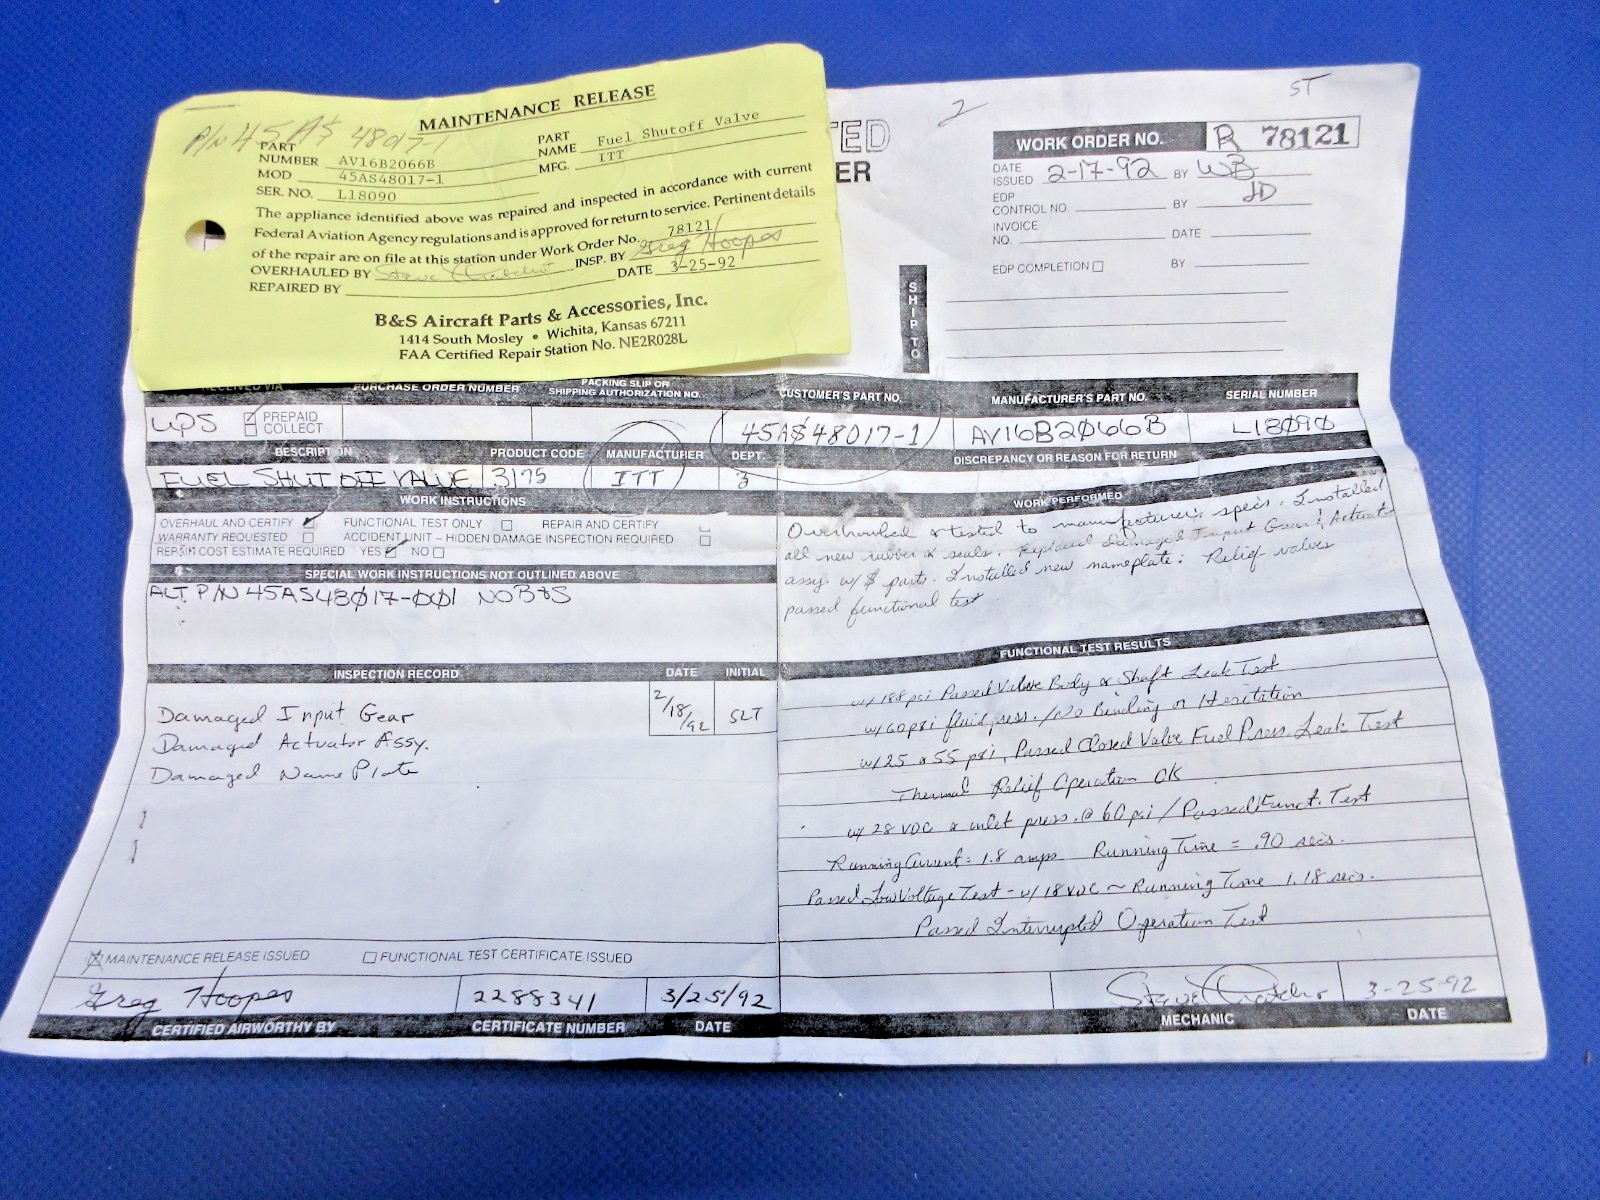 MAINTENANCE RELEASE
P/N 45AS 48017-1
PART NUMBER AV16B2066B
PART NAME Fuel Shutoff Valve
MOD 45AS48017-1
MFG. ITT
SER. NO. L18090
The appliance identified above was repaired and inspected in accordance with current
Federal Aviation Agency regulations and is approved for return to service. Pertinent details
of the repair are on file at this station under Work Order No. 78121
OVERHAULED BY Steve INSP. BY Greg Hoopes
REPAIRED BY DATE 3-25-92
B&S Aircraft Parts & Accessories, Inc.
1414 South Mosley • Wichita, Kansas 67211
FAA Certified Repair Station No. NE2R028L
2 ST
TED
ER
WORK ORDER NO. R 78121
DATE ISSUED 2-17-92 BY WB
EDP CONTROL NO. BY JD
INVOICE NO. DATE
EDP COMPLETION BY
SHIP TO
RECEIVED VIA PURCHASE ORDER NUMBER PACKING SLIP OR SHIPPING AUTHORIZATION NO. CUSTOMER'S PART NO. MANUFACTURER'S PART NO. SERIAL NUMBER
UPS PREPAID COLLECT 45A$48017-1 AV16B2066B L18090
DESCRIPTION PRODUCT CODE MANUFACTURER DEPT. DISCREPANCY OR REASON FOR RETURN
FUEL SHUT OFF VALVE 3175 ITT 3
WORK INSTRUCTIONS
OVERHAUL AND CERTIFY FUNCTIONAL TEST ONLY REPAIR AND CERTIFY
WARRANTY REQUESTED ACCIDENT UNIT – HIDDEN DAMAGE INSPECTION REQUIRED
REPAIR COST ESTIMATE REQUIRED YES NO
SPECIAL WORK INSTRUCTIONS NOT OUTLINED ABOVE
ALT. P/N 45AS48017-001 NO B&S
INSPECTION RECORD DATE INITIAL
2/18/92 SLT
Damaged Input Gear
Damaged Actuator Assy.
Damaged Name Plate
MAINTENANCE RELEASE ISSUED FUNCTIONAL TEST CERTIFICATE ISSUED
Greg Hoopes 2288341 3/25/92
CERTIFIED AIRWORTHY BY CERTIFICATE NUMBER DATE
WORK PERFORMED
Overhauled & tested to manufacturer's specs. Installed
all new rubber & seals. Replaced damaged Input Gear & Actuator
assy. w/$ parts. Installed new nameplate. Relief valves
passed functional test
FUNCTIONAL TEST RESULTS
w/ 188 psi Passed Valve Body & Shaft Leak Test
w/ 60 psi fluid press. / No Binding or Hesitation
w/ 25 & 55 psi, Passed Closed Valve Fuel Press. Leak Test
Thermal Relief Operation OK
w/ 28 VDC & inlet press. @ 60 psi / Passed Funct. Test
Running Current = 1.8 amps Running Time = .90 secs.
Passed Low Voltage Test - w/ 18 VDC ~ Running Time 1.18 secs.
Passed Interrupted Operation Test
Steve 3-25-92
MECHANIC DATE